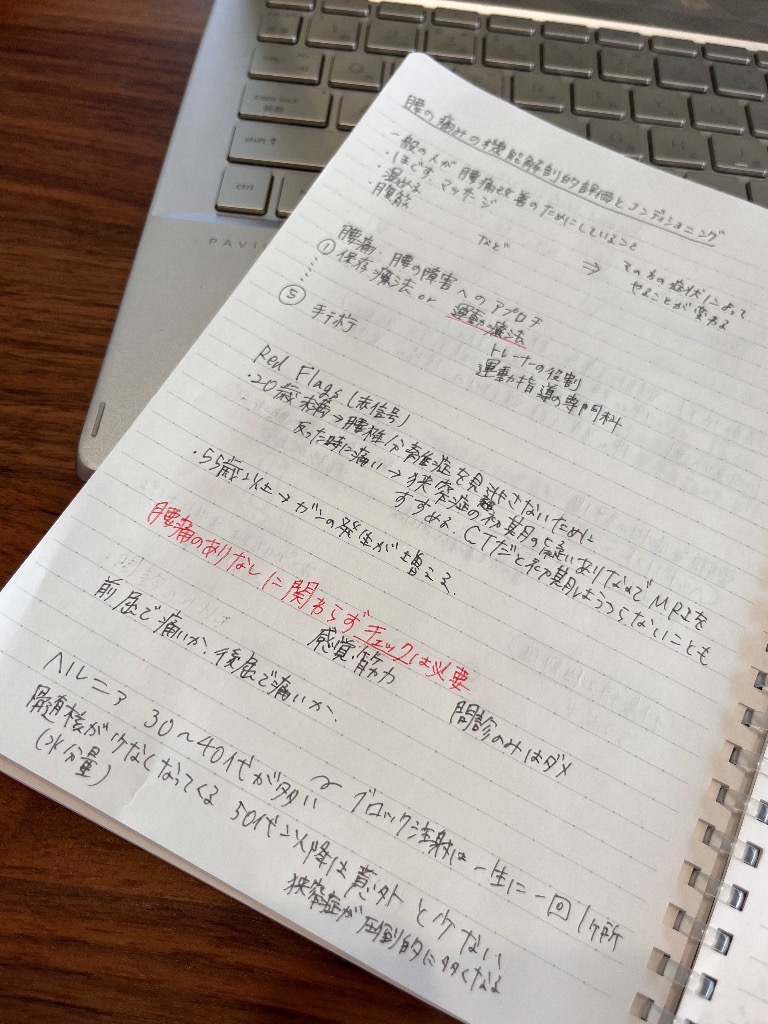 腰の痛みの機能解剖的評価とコンディショニング
一般の人が腰痛改善のためにしていること
・ほぐす、マッサージ
・温める
・腹筋
など ⇒ その方の症状によって
やることが変わる
腰痛、腰の障害へのアプローチ
① 保存療法 or 運動療法
トレーナーの役割
運動指導の専門科
⑤ 手術
Red Flags (赤信号)
・20歳未満→腰椎分離症を見逃さないために
反った時に痛い→狭窄症の初期の疑いありなのでMRIを
すすめる。CTだと初期はうつらないことも
・55歳以上→ガンの発生が増える。
腰痛のありなしに関わらずチェックは必要
感覚・筋力
前屈で痛いか、後屈で痛いか、
問診のみはダメ
ヘルニア 30〜40代が多い 〜 ブロック注射は一生に一回1ヶ所
髄核が少なくなってくる 50代以降は意外と少ない
(水分量)
狭窄症が圧倒的に多くなる
caps lock
shift
ctrl
PAVI